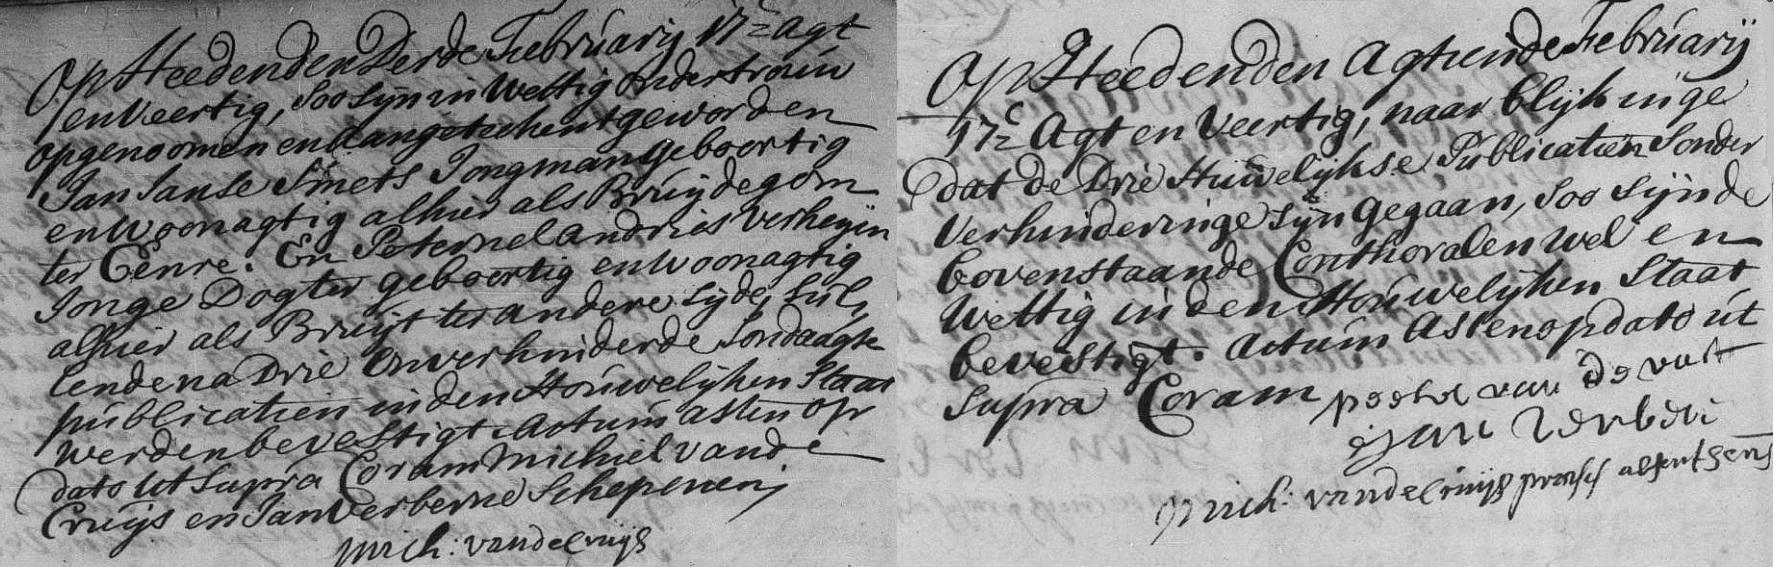 Op Heeden den Derde Februarij 17c agt
en Veertig, Soo Sijn in Wettig ondertrouw
opgenoomen en aangetekent geworden
Jan Janse Smets Jongman geboortig
en Woonagtig alhier als Bruijdegom
ter Eenre. En Peternel Andries Verheijen
Jonge Dogter geboortig en Woonagtig
alhier als Bruijt ter andere Sijde, Sul,
lende na Drie onverhinderde Sondaagse
publicatien in den Houwelijken Staat
werden bevestigt. Actum Asten op
dato ut Supra Coram Michiel vande
Cruijs en Jan Verberne Schepenen,
Mich: vande Cruijs
Op Heeden den Agtiende Februarij
17c Agt en Veertig, naar blijk in ge
dat de Drie Huwelijkse Publicatien Sonder
Verhinderinge Sijn gegaan, Soo Sijn de
bovenstaande Conthoralen wel en
Wettig in den Houwelijken Staat
bevestigt. Actum Asten op dato ut
Supra Coram
peeter van de vort
Jan Verberne
Mich: vande Cruijs